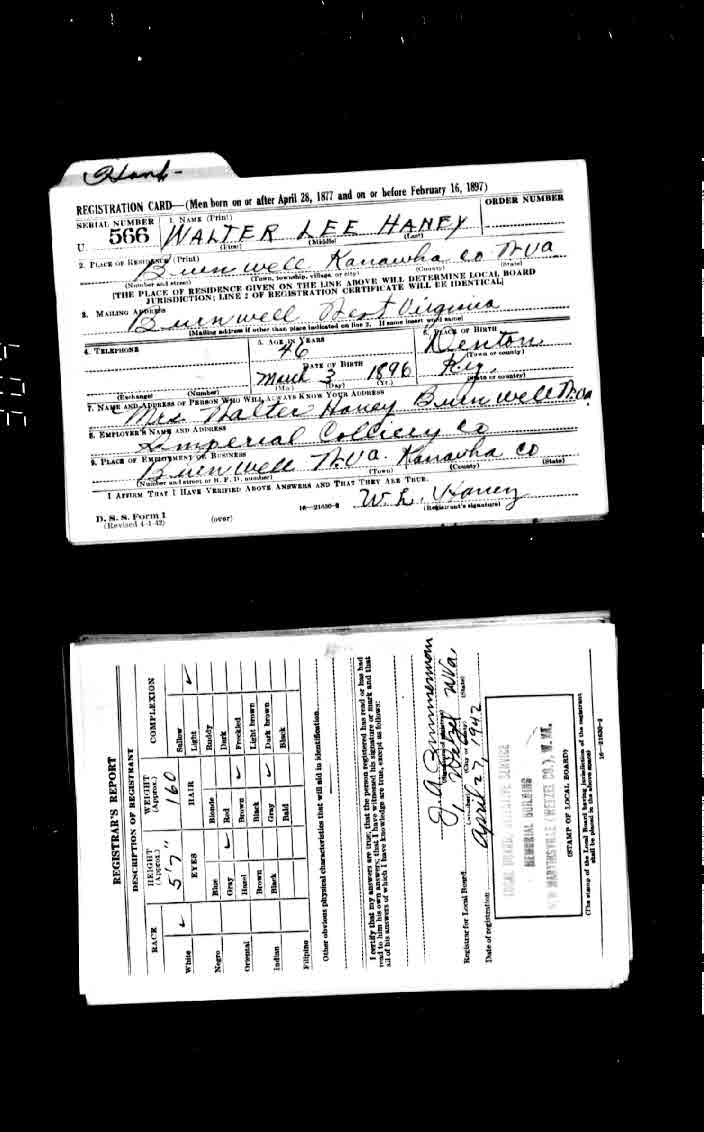 REGISTRATION CARD—(Men born on or after April 28, 1877 and on or before February 16, 1897)
SERIAL NUMBER
1. NAME (Print)
ORDER NUMBER
U. 566
WALTER LEE HANEY
(First) (Middle) (Last)
2. PLACE OF RESIDENCE (Print)
Burnwell Kanawha co W.Va
(Number and street) (Town, township, village, or city) (County) (State)
[THE PLACE OF RESIDENCE GIVEN ON THE LINE ABOVE WILL DETERMINE LOCAL BOARD
JURISDICTION; LINE 2 OF REGISTRATION CERTIFICATE WILL BE IDENTICAL]
3. MAILING ADDRESS
Burnwell West Virginia
[Mailing address if other than place indicated on line 2. If same insert word same]
4. TELEPHONE
5. AGE IN YEARS
46
6. PLACE OF BIRTH
Denton
(Town or county)
DATE OF BIRTH
March 3 1896
(Mo.) (Day) (Yr.)
Ky.
(State or country)
(Exchange) (Number)
7. NAME AND ADDRESS OF PERSON WHO WILL ALWAYS KNOW YOUR ADDRESS
Mrs Walter Haney Burnwell W.Va
8. EMPLOYER'S NAME AND ADDRESS
Imperial Colliery Co
9. PLACE OF EMPLOYMENT OR BUSINESS
Burnwell W.Va. Kanawha Co
(Number and street or R. F. D. number) (Town) (County) (State)
I AFFIRM THAT I HAVE VERIFIED ABOVE ANSWERS AND THAT THEY ARE TRUE.
W. L. Haney
D. S. S. Form 1
(Revised 4-1-42)
(over)
16—21630-2
(Registrant's signature)
REGISTRAR'S REPORT
DESCRIPTION OF REGISTRANT
RACE
HEIGHT (Approx.)
WEIGHT (Approx.)
COMPLEXION
5'7"
160
White ✓
EYES
HAIR
Sallow
Light ✓
Negro
Blue
Blonde
Ruddy
Gray ✓
Red
Dark
Oriental
Hazel
Brown ✓
Freckled
Brown
Black
Light brown
Indian
Black
Gray ✓
Dark brown
Bald
Black
Filipino
Other obvious physical characteristics that will aid in identification
I certify that my answers are true; that the person registered has read or has had
read to him his own answers; that I have witnessed his signature or mark and that
all of his answers of which I have knowledge are true, except as follows:
J. A. Zimmerman
Registrar for Local Board
Wetzel W.Va.
(City or county) (State)
Date of registration April 27, 1942
LOCAL BOARD SELECTIVE SERVICE
MEMORIAL BUILDING
NEW MARTINSVILLE (WETZEL CO.), W. VA.
(STAMP OF LOCAL BOARD)
(The stamp of the Local Board having jurisdiction of the registrant
shall be placed in the above space)
16—21630-2